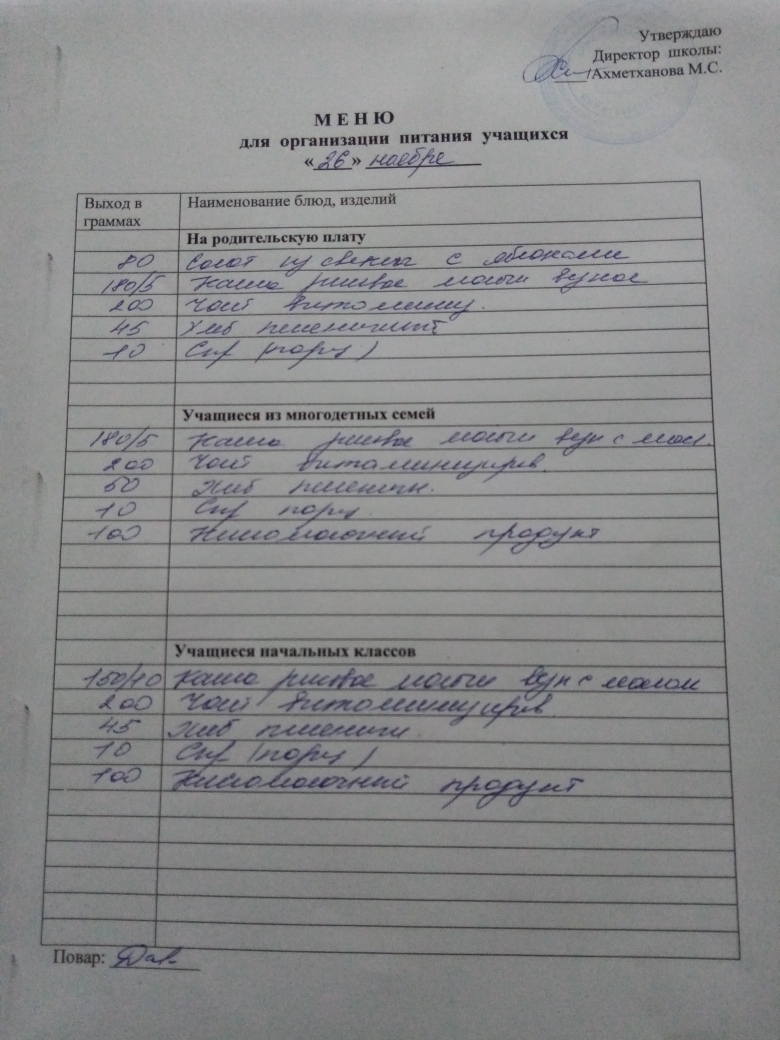 Утверждаю
Директор школы:
Ахметханова М.С.
М Е Н Ю
для организации питания учащихся
«26» ноября
Выход в граммах
Наименование блюд, изделий
На родительскую плату
80 Салат из свеклы с яблоками
180/5 Каша рисовая молоч вязкая
200 Чай витаминиз.
45 Хлеб пшеничный
10 Сыр (порц)
Учащиеся из многодетных семей
180/5 Каша рисовая молочн вязк с масл.
200 Чай витаминизиров.
50 Хлеб пшеничн.
10 Сыр порц.
100 Кисломолочный продукт
Учащиеся начальных классов
150/10 Каша рисовая молочн вязк с маслом
200 Чай витаминизиров.
45 Хлеб пшеничн.
10 Сыр (порц)
100 Кисломолочный продукт
Повар: